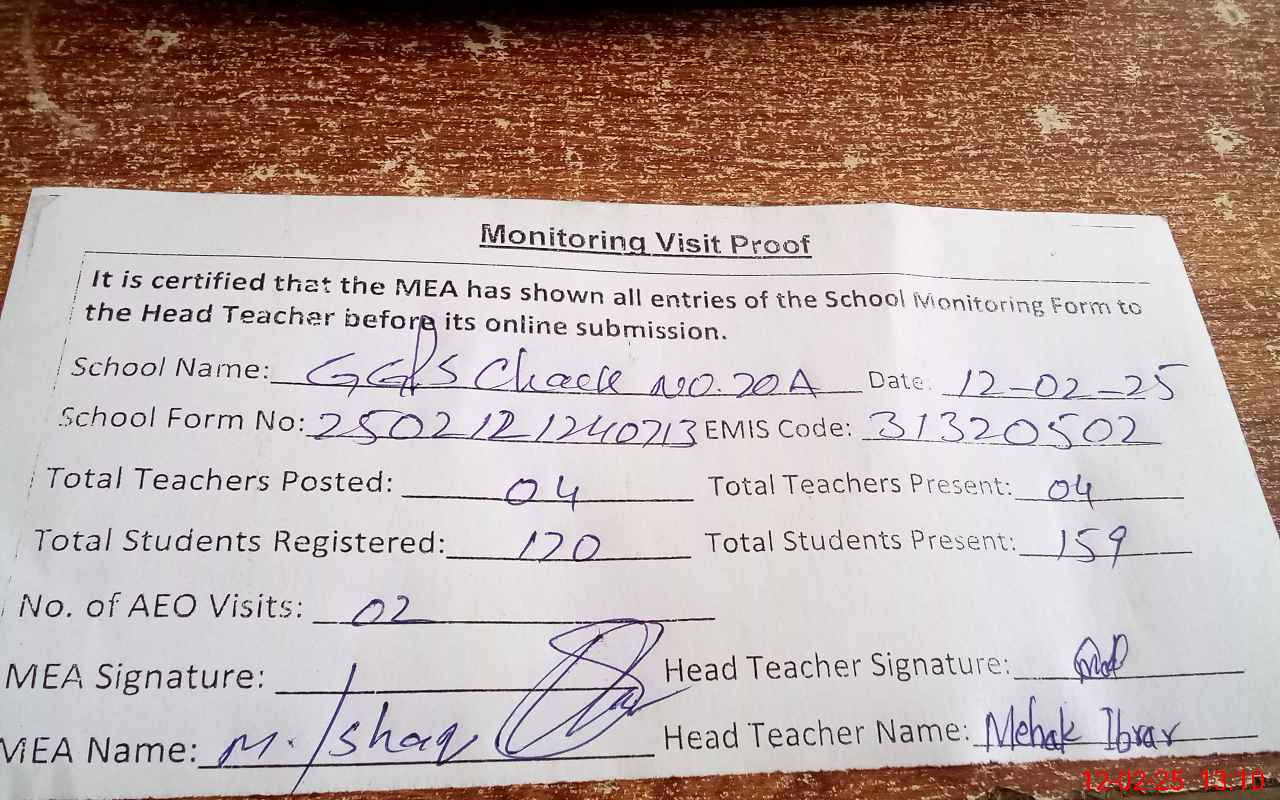 Monitoring Visit Proof
It is certified that the MEA has shown all entries of the School Monitoring Form to
the Head Teacher before its online submission.
School Name: GGPS Chack NO. 20A Date: 12-02-25
School Form No: 2502121240713 EMIS Code: 31320502
Total Teachers Posted: 04 Total Teachers Present: 04
Total Students Registered: 170 Total Students Present: 159
No. of AEO Visits: 02
MEA Signature: Head Teacher Signature:
MEA Name: M. Ishaq Head Teacher Name: Mehak Ibrar
12-02-25 13:10